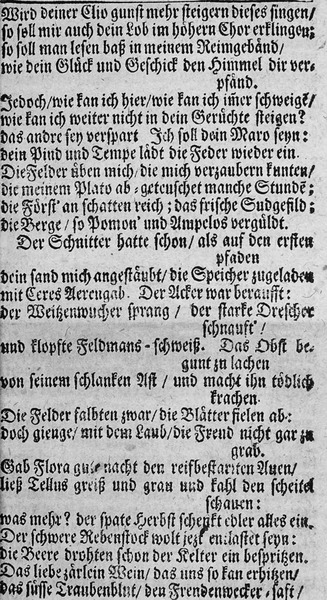 Wird deiner Clio gunst mehr steigern dieses singen/
so soll mir auch dein Lob im höhern Chor erklingen;
so soll man lesen baß in meinem Reimgebänd/
wie dein Glück und Geschick den Himmel dir ver-
pfänd.
Jedoch/wie kan ich hier/wie kan ich im̃er schweigẽ/
wie kan ich weiter nicht in dein Gerüchte steigen?
das andre sey verspart Ich soll dein Maro seyn:
dein Pind und Tempe lädt die Feder wieder ein.
Die Felder üben mich/die mich verzaubern kunten/
die meinem Plato ab-geteuschet manche Stundẽ;
die Först' an schatten reich; das frische Sudgefild;
die Berge/ so Pomon' und Ampelos vergüldt.
Der Schnitter hatte schon/ als auf den ersten
pfaden
dein sand mich angestäubt/die Speicher zugeladen
mit Ceres Aerengab. Der Acker war beraufft:
der Weitzenwucher sprang/ der starke Drescher
schnauft'/
und klopfte Feldmans-schweiß. Das Obst be-
gunt zu lachen
von seinem schlanken Ast/ und macht ihn tödlich
krachen.
Die Felder falbten zwar/die Blätter fielen ab:
doch gienge/mit dem Laub/die Freud nicht gar zu
grab.
Gab Flora gute nacht den reifbestarrten Auen/
ließ Tellus greiß und grau und kahl den scheitel
schauen:
was mehr? der spate Herbst schenkt edler alles ein.
Der schwere Rebenstock wolt jezt entlastet seyn:
die Beere drohten schon der Kelter ein bespritzen.
Das liebe zärlein Wein/das uns so kan erhitzen/
das süsse Traubenblut/ den Freudenwecker-saft/